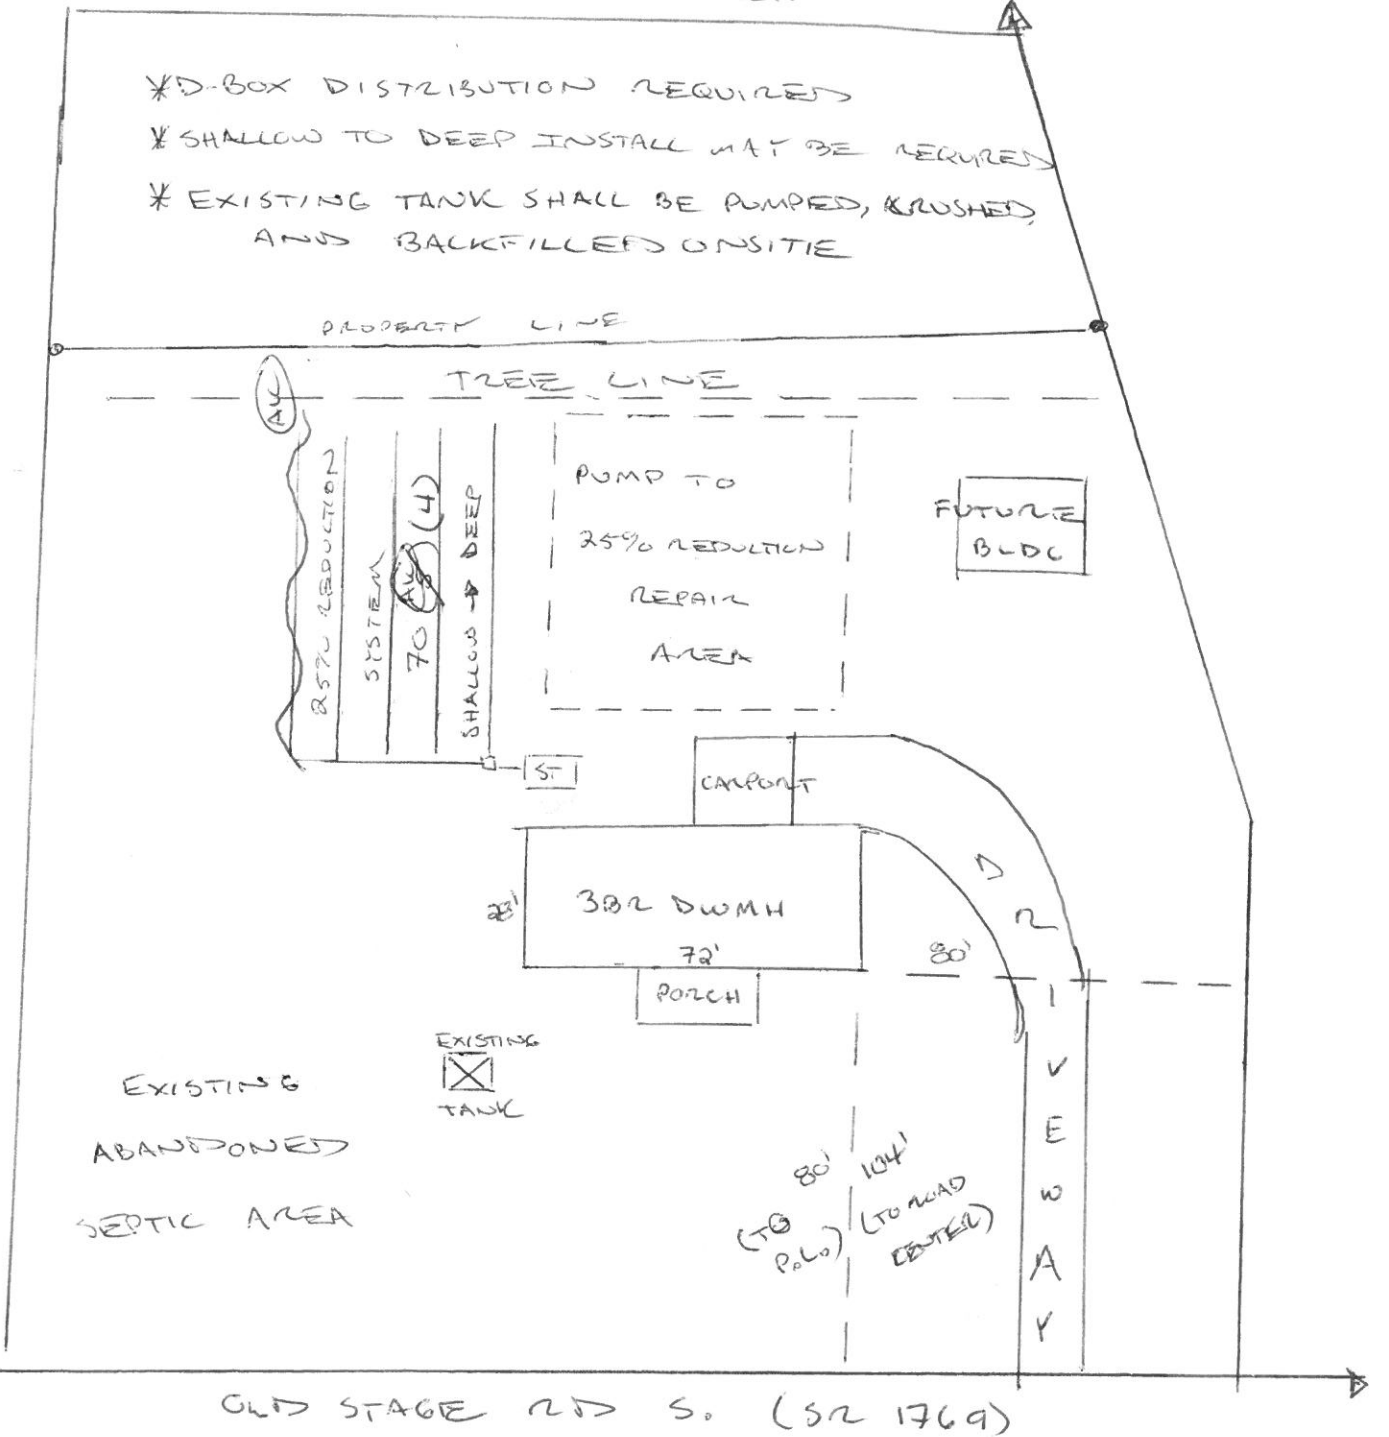 *D-BOX DISTRIBUTION REQUIRED
*SHALLOW TO DEEP INSTALL MAY BE REQUIRED
* EXISTING TANK SHALL BE PUMPED, CRUSHED,
AND BACKFILLED ONSITE
PROPERTY LINE
TREE LINE
AK
25% REDUCTION
SYSTEM
70 (4)
AK
SHALLOW → DEEP
PUMP TO
25% REDUCTION
REPAIR
AREA
FUTURE
BLDG
ST
CARPORT
28'
3BR DWMH
72'
PORCH
80'
DRIVEWAY
EXISTING
TANK
EXISTING
ABANDONED
SEPTIC AREA
80'
(TO
P.L.)
104'
(TO ROAD
CENTER)
OLD STAGE RD S. (SR 1769)